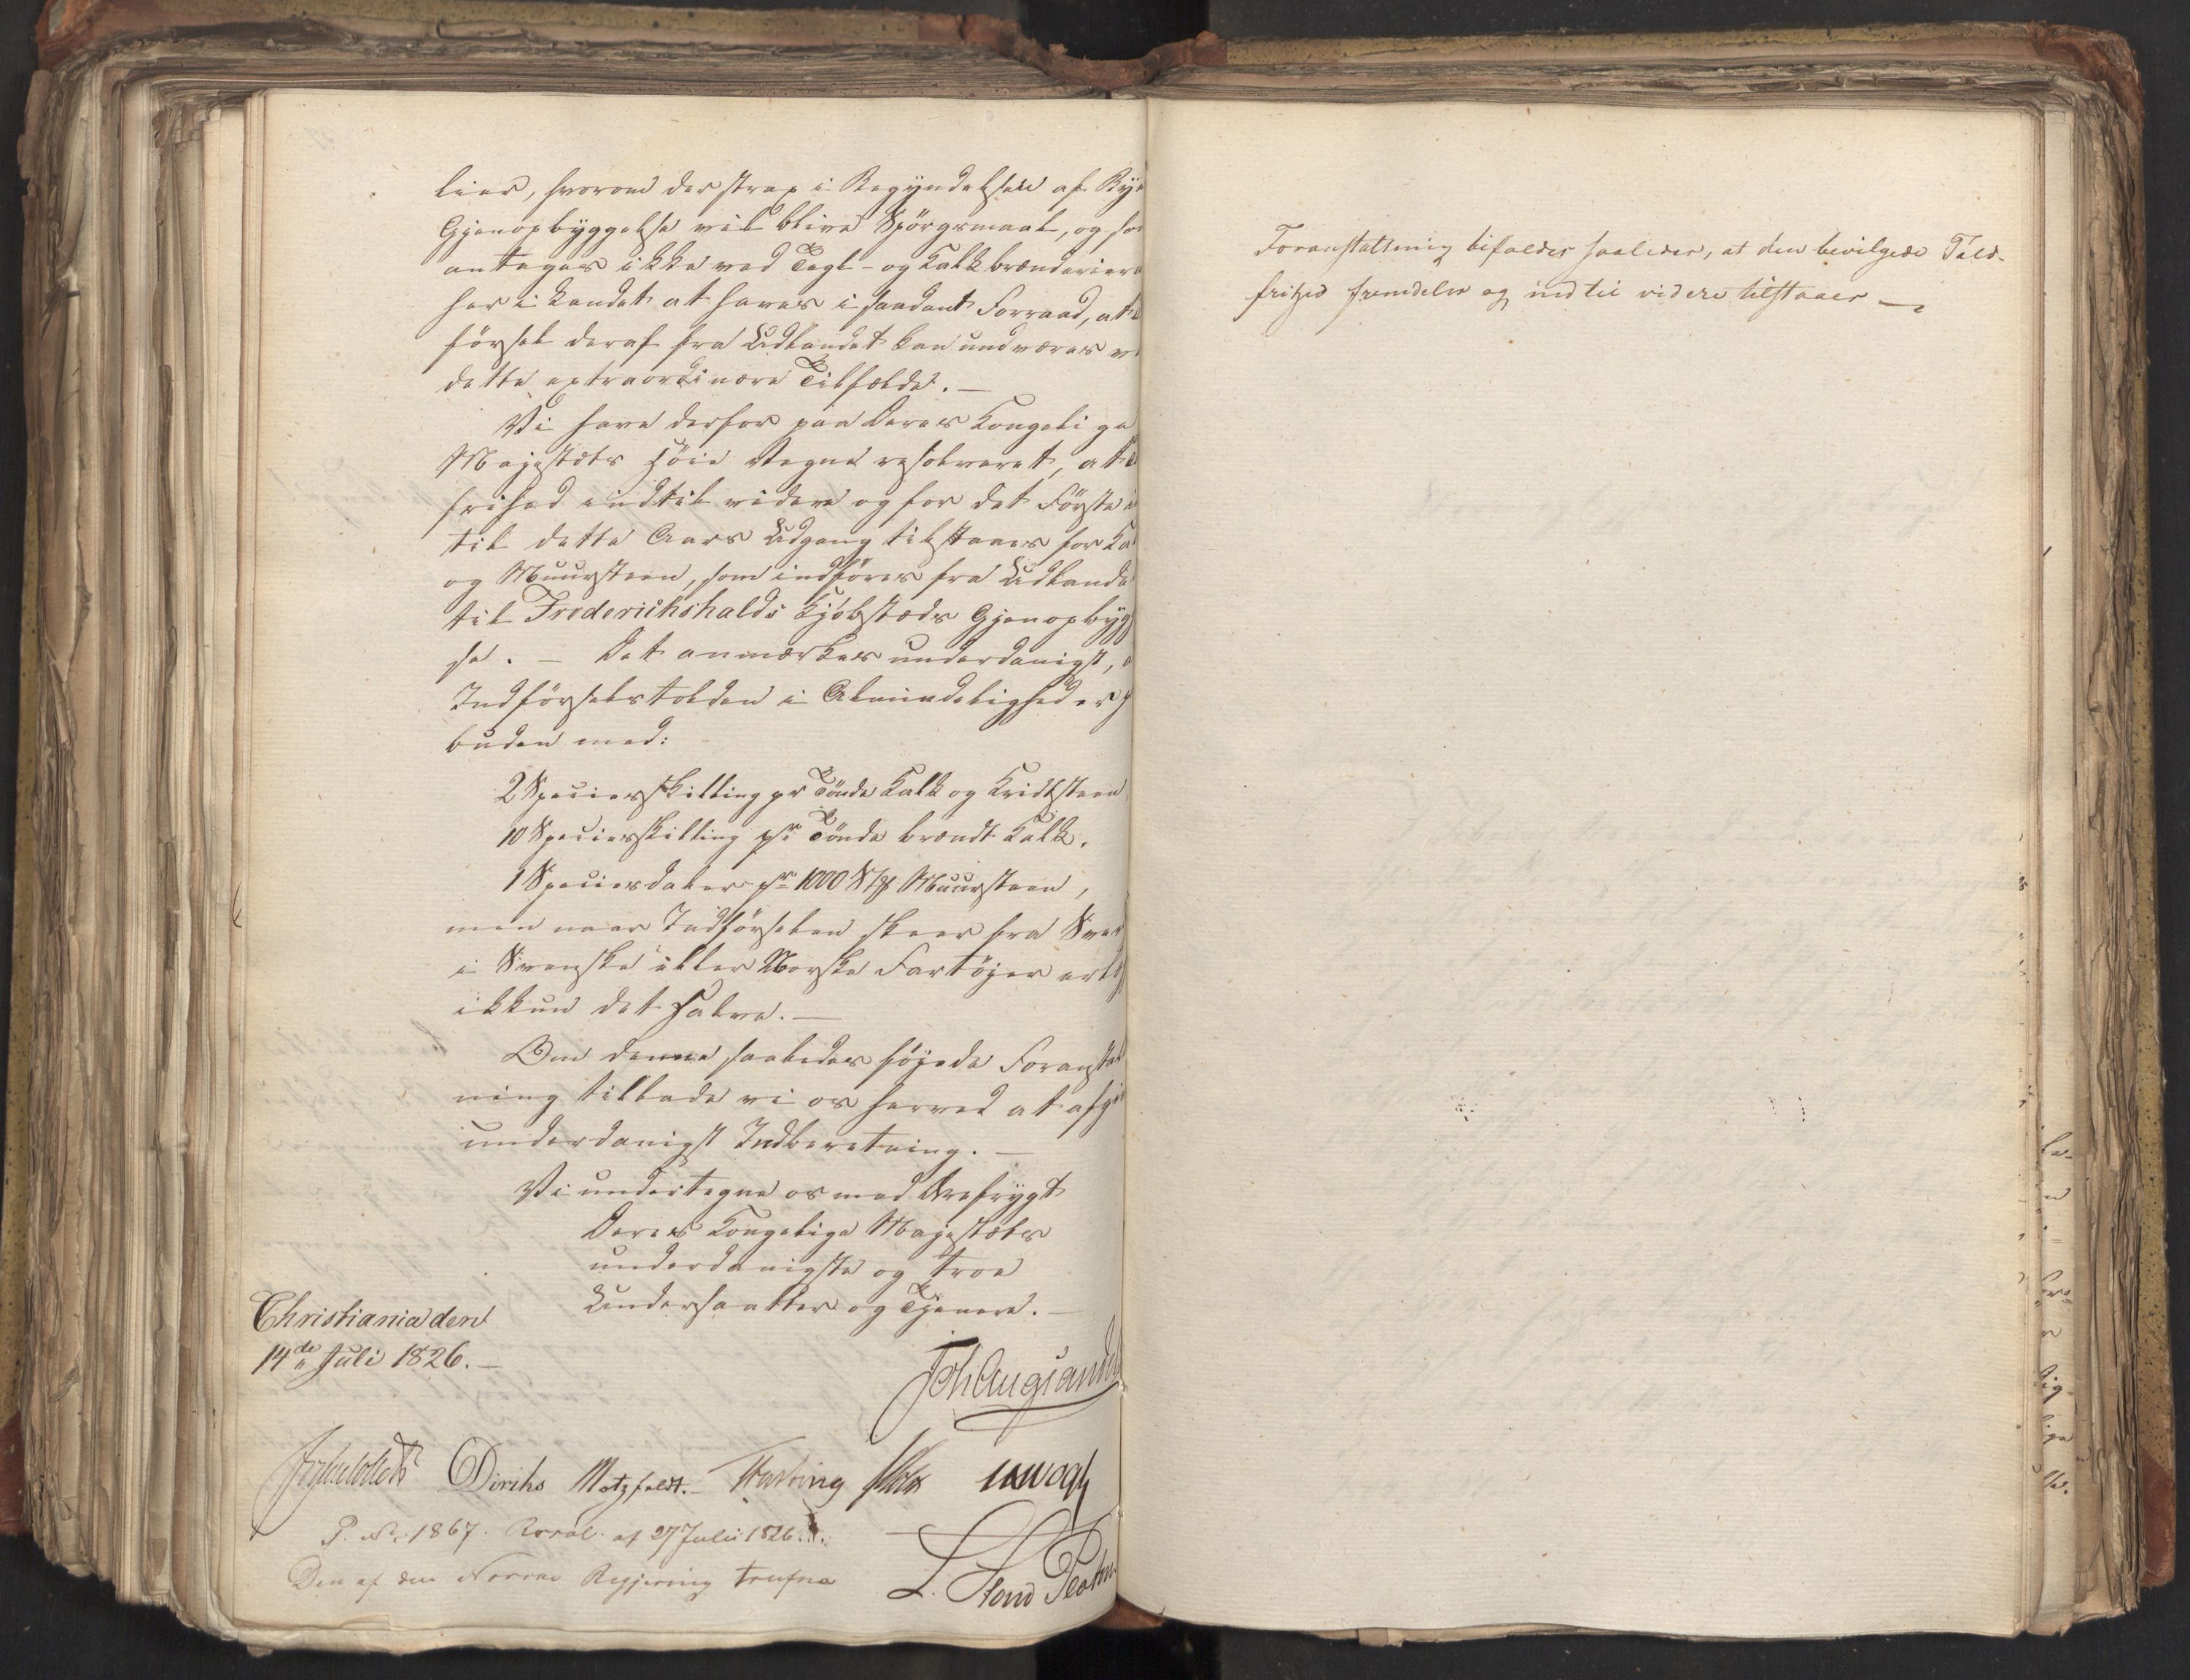 lier, hvorom der strax i Begyndelsen af Bye
Gjenopbyggelse vil blive Spörgsmaal, og so
antages ikke ved Tegl- og Kalkbrænderiern
her i Landet at haves i saadant Forraad, at
försel deraf fra Udlandet kan undværes v
dette extraordinære Tilfælde. —
Vi have derfor paa Deres Kongelige
Majestæts Höie Vegne resolveret, at
frihed indtil videre og for det Förste i
til dette Aars Udgang tilstaaes for Ka
og Muursteen, som indföres fra Udlande
til Frederichshalds Kjöbstæds Gjenopbyg
se. — Det anmærkes underdanigst, a
Indförselstolden i Almindelighed er p
buden med:
2 Speciesskilling pr Tönde Kalk og Kridtsteen
10 Speciesskilling pr Tönde brændt Kalk.
1 Speciesdaler pr 1000 Stk Muursteen,
men naar Indförselen skeer fra Sver
i Svenske eller Norske Fartöjer erlæg
ikkun det Halve. —
Om denne saaledes föjede Foranstalt
ning tillade vi os herved at afgiv
underdanigst Indberetning. —
Vi undertegne os med Ærefrygt
Deres Kongelige Majestæts
underdanigste og troe
Undersaatter og Tjenere. —
Christiania den
14de Juli 1826. —
Joh Aug Sandels
Collett Diriks Motzfeldt. Fasting Holst Vogt
P. No 1867. Resol. af 27 Julii 1826.
L. Stoud Platou
Den af den Norske Regjering trufne
Foranstaltning bifaldes saaledes, at den bevilgede Told-
frihed fremdeles og indtil videre tilstaaes —